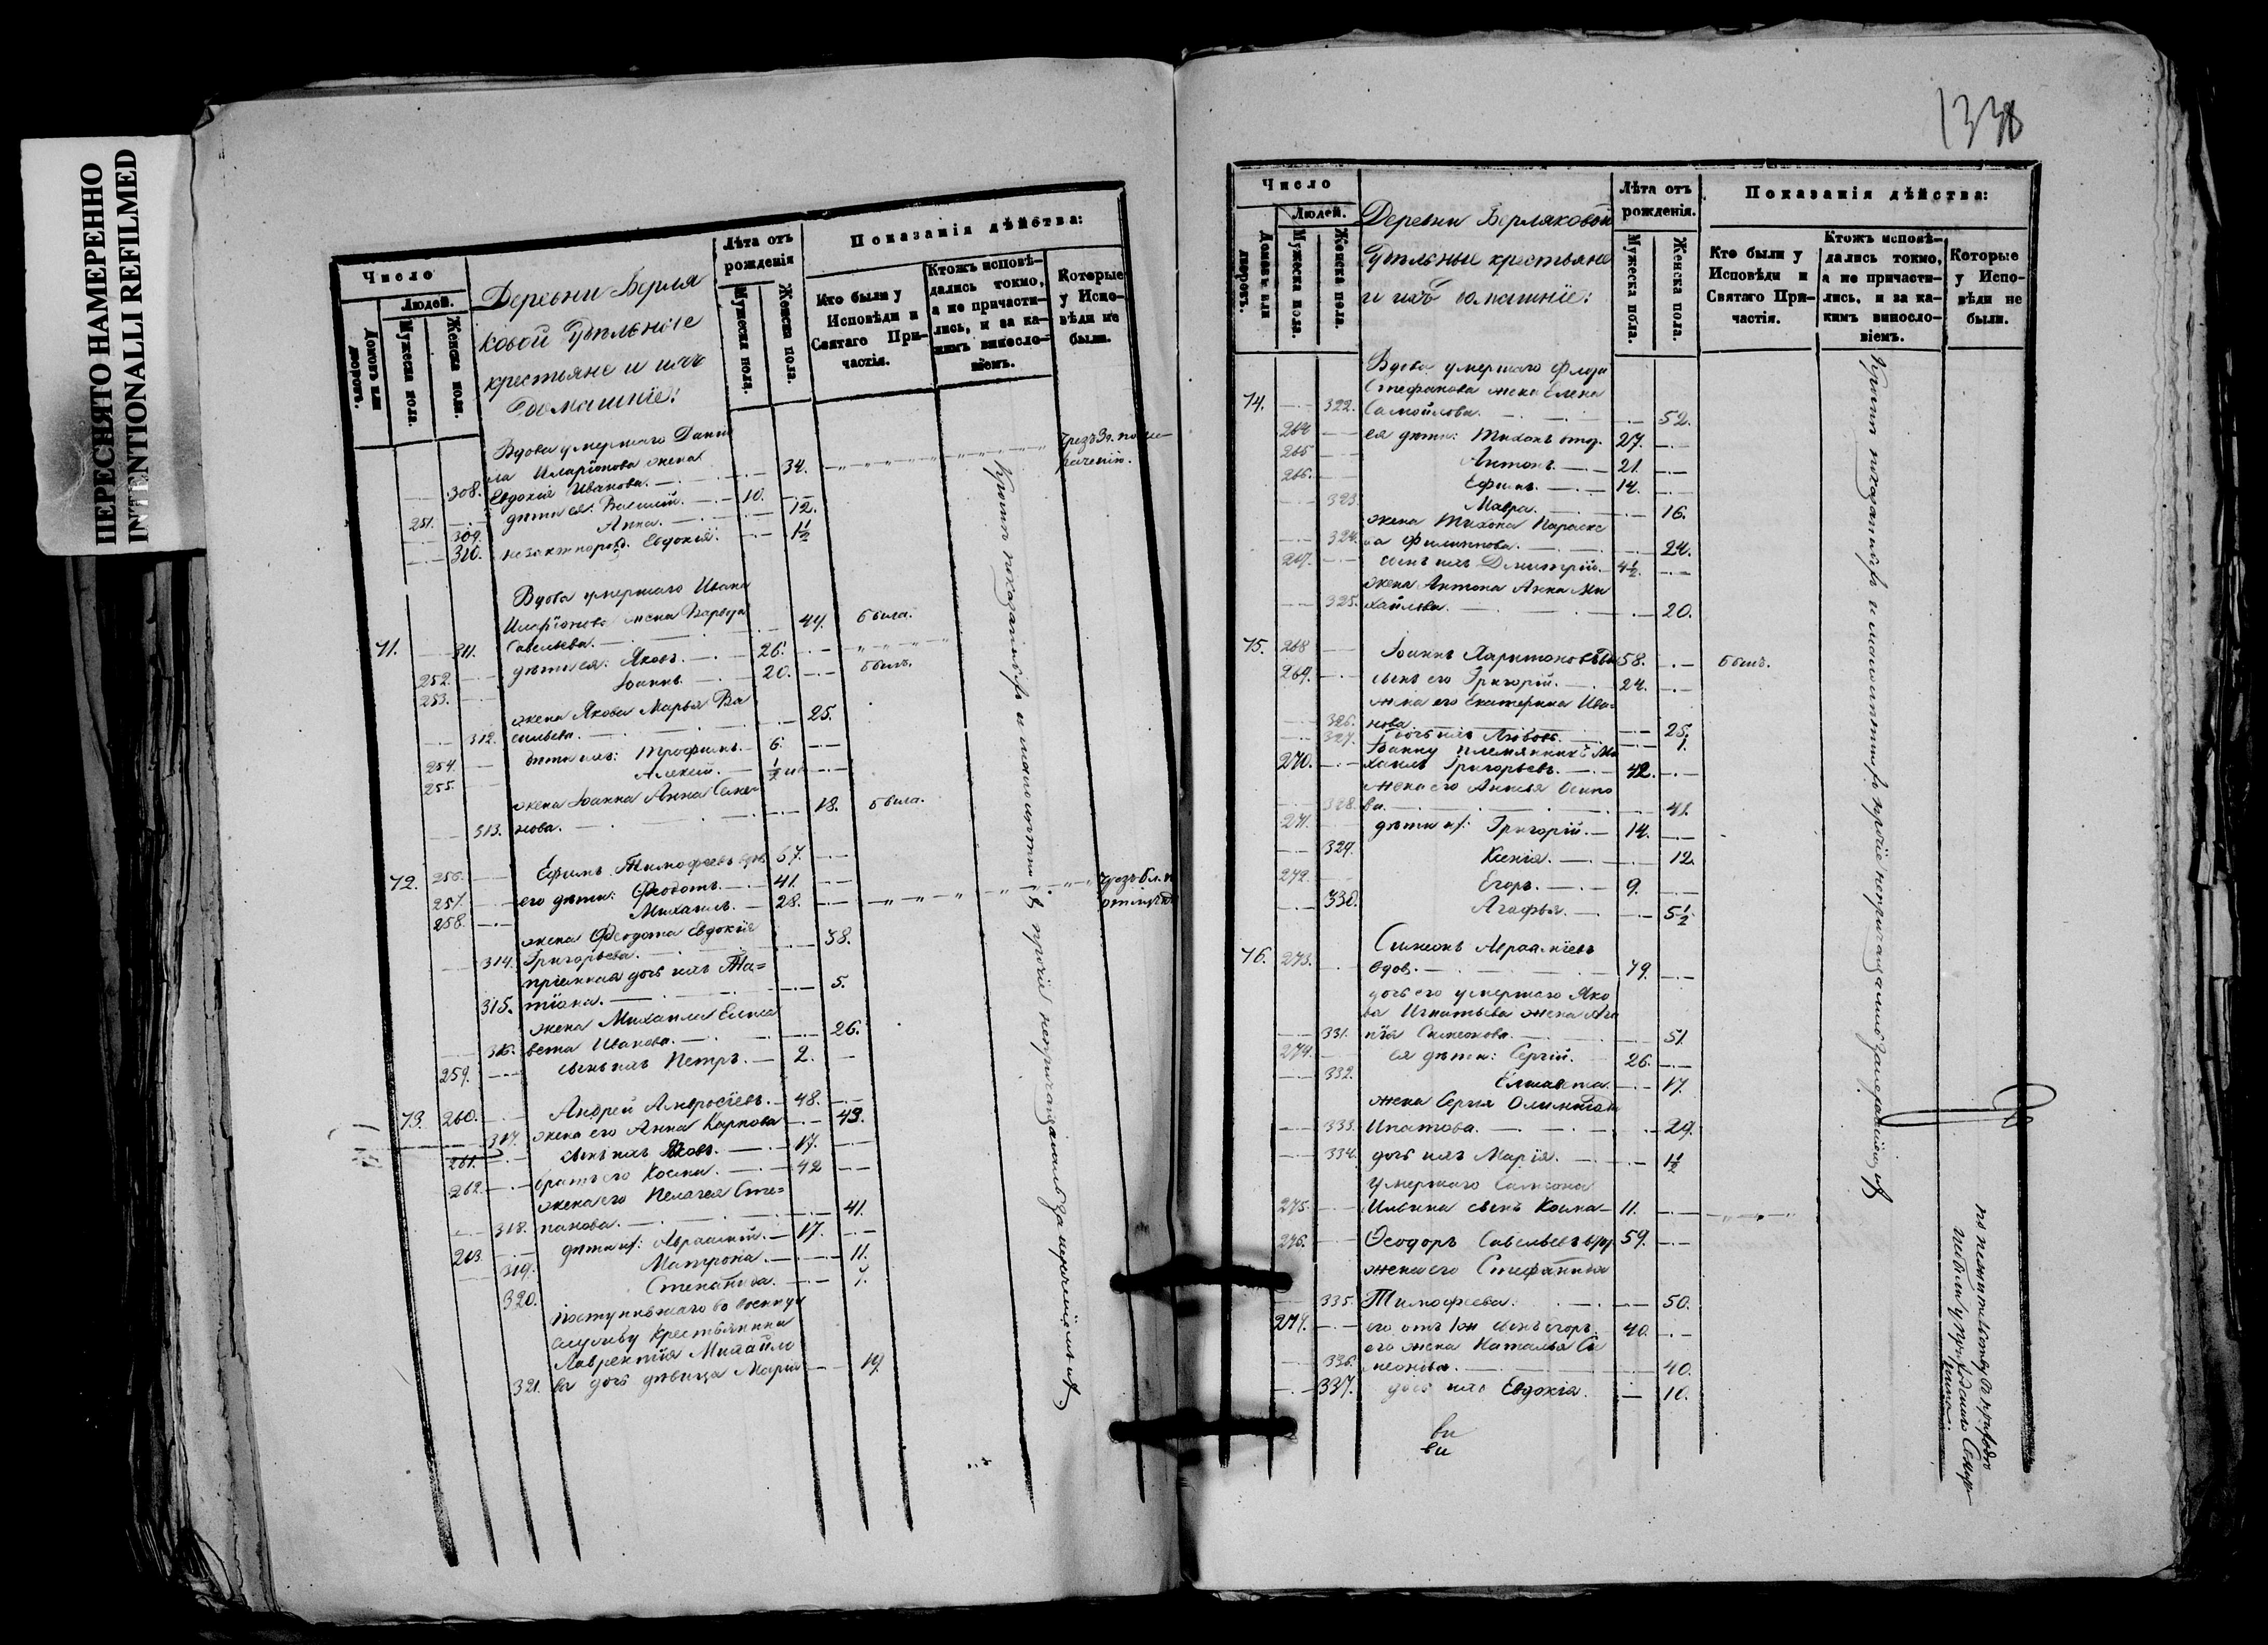 ПЕРЕСНЯТО НАМЕРЕННО
INTENTIONALLI REFILMED
Число
Людей.
Домовъ или дворовъ.
Мужеска пола.
Женска пола.
Деревни Верля
ковой Удѣльные
крестьяне и ихъ
домашніе:
Лѣта отъ рожденія
Мужеска пола.
Женска пола.
Показанія дѣйства:
Кто были у Исповѣди и Святаго Причастія.
Ктожъ исповѣдались токмо, а не причастились, и за какимъ винословіемъ.
Которые у Исповѣди не были.
Вдова умершаго Дани
ла Иларіонова жена
308. Евдокія Иванова. 34.
251. дѣти ея: Василій. 10.
309. Анна. 12.
310. Евдокія. 1½
Вдова умершаго Ивана
Иларіонова жена Варвара
71. 311. Савельева. 44. была.
252. дѣти ея: Яковъ. 26.
253. Іоаннъ. 20. былъ.
жена Якова Марья Ва
312. сильева. 25.
254. дѣти ихъ: Трофимъ. 6.
255. Алексій. ½
жена Іоанна Анна Семе
313. нова. 18. была.
72. 256. Ефимъ Тимофеевъ вдв 67.
257. его дѣти: Феодотъ. 41.
258. Михаилъ. 28.
жена Феодота Евдокія
314. Григорьева. 38.
пріемная дочь ихъ Та=
315. тіана. 5.
жена Михаила Елиса
316. вета Иванова. 26.
259. сынъ ихъ Петръ. 2.
73. 260. Андрей Амвросіевъ. 48.
317. жена его Анна Карпова 43.
261. сынъ ихъ Яковъ. 17.
262. братъ его Косма. 42
жена его Пелагея Сте=
318. панова. 41.
263. дѣти их: Авраамій. 17.
319. Матрона. 11.
320. Степанида. 7.
поступившаго во военную
службу крестьянина
Лаврентія Михайло
321. ва дочь дѣвица Марія 19.
1338
Число
Людей.
Домовъ или дворовъ.
Мужеска пола.
Женска пола.
Деревни Верляковой
Удѣльные крестьяне
и ихъ домашніе:
Лѣта отъ рожденія.
Мужеска пола.
Женска пола.
Показанія дѣйства:
Кто были у Исповѣди и Святаго Причастія.
Ктожъ исповѣдались токмо, а не причастились, и за какимъ винословіемъ.
Которые у Исповѣди не были.
Вдова умершаго
Стефанова жена Елена
74. 322. Самойлова. 52.
264 ея дѣти: Тихонъ 27.
265 Антонъ. 21.
266. Ефимъ. 14.
323. Мавра. 16.
жена Тихона Параске
324. ва Филиппова. 24.
267. сынъ ихъ Димитрій. 4½.
жена Антона Анна Ми
325. хайлова. 20.
75. 268 Іоаннъ Харитоновъ 58. былъ.
269. сынъ его Григорій. 24.
жена его Екатерина Ива=
326. нова. 25.
327. дочь ихъ Любовь. 1.
Іоанну племянникъ Ми
270. хаилъ Григорьевъ. 42.
жена его Анисія Осипо
328. ва. 41.
271. дѣти их: Григорій. 14.
329. Ксенія. 12.
272. Егоръ. 9.
330. Агафья. 5½.
Симеонъ Авраамiевъ
76. 273. вдов. 79.
дочь его умершаго Яко
ва Игнатьева жена Ага
331. пія Симеонова. 51.
274. ея дѣти: Сергій. 26.
332. Елисавета. 17.
жена Сергія Олимпіада
333. Ипатова. 29.
334. дочь ихъ Марія. 1½
Умершаго Самсона
275. Ильина сынъ Косма 11.
276. Ѳеодоръ Савельевъ 59.
жена его Стефанида
335. Тимофеева. 50.
277. его сынъ Егоръ. 40.
его жена Наталья Си
336. меонова. 40.
337. дочь ихъ Евдокія. 10.